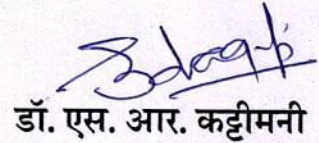 डॉ. एस. आर. कट्टीमनी